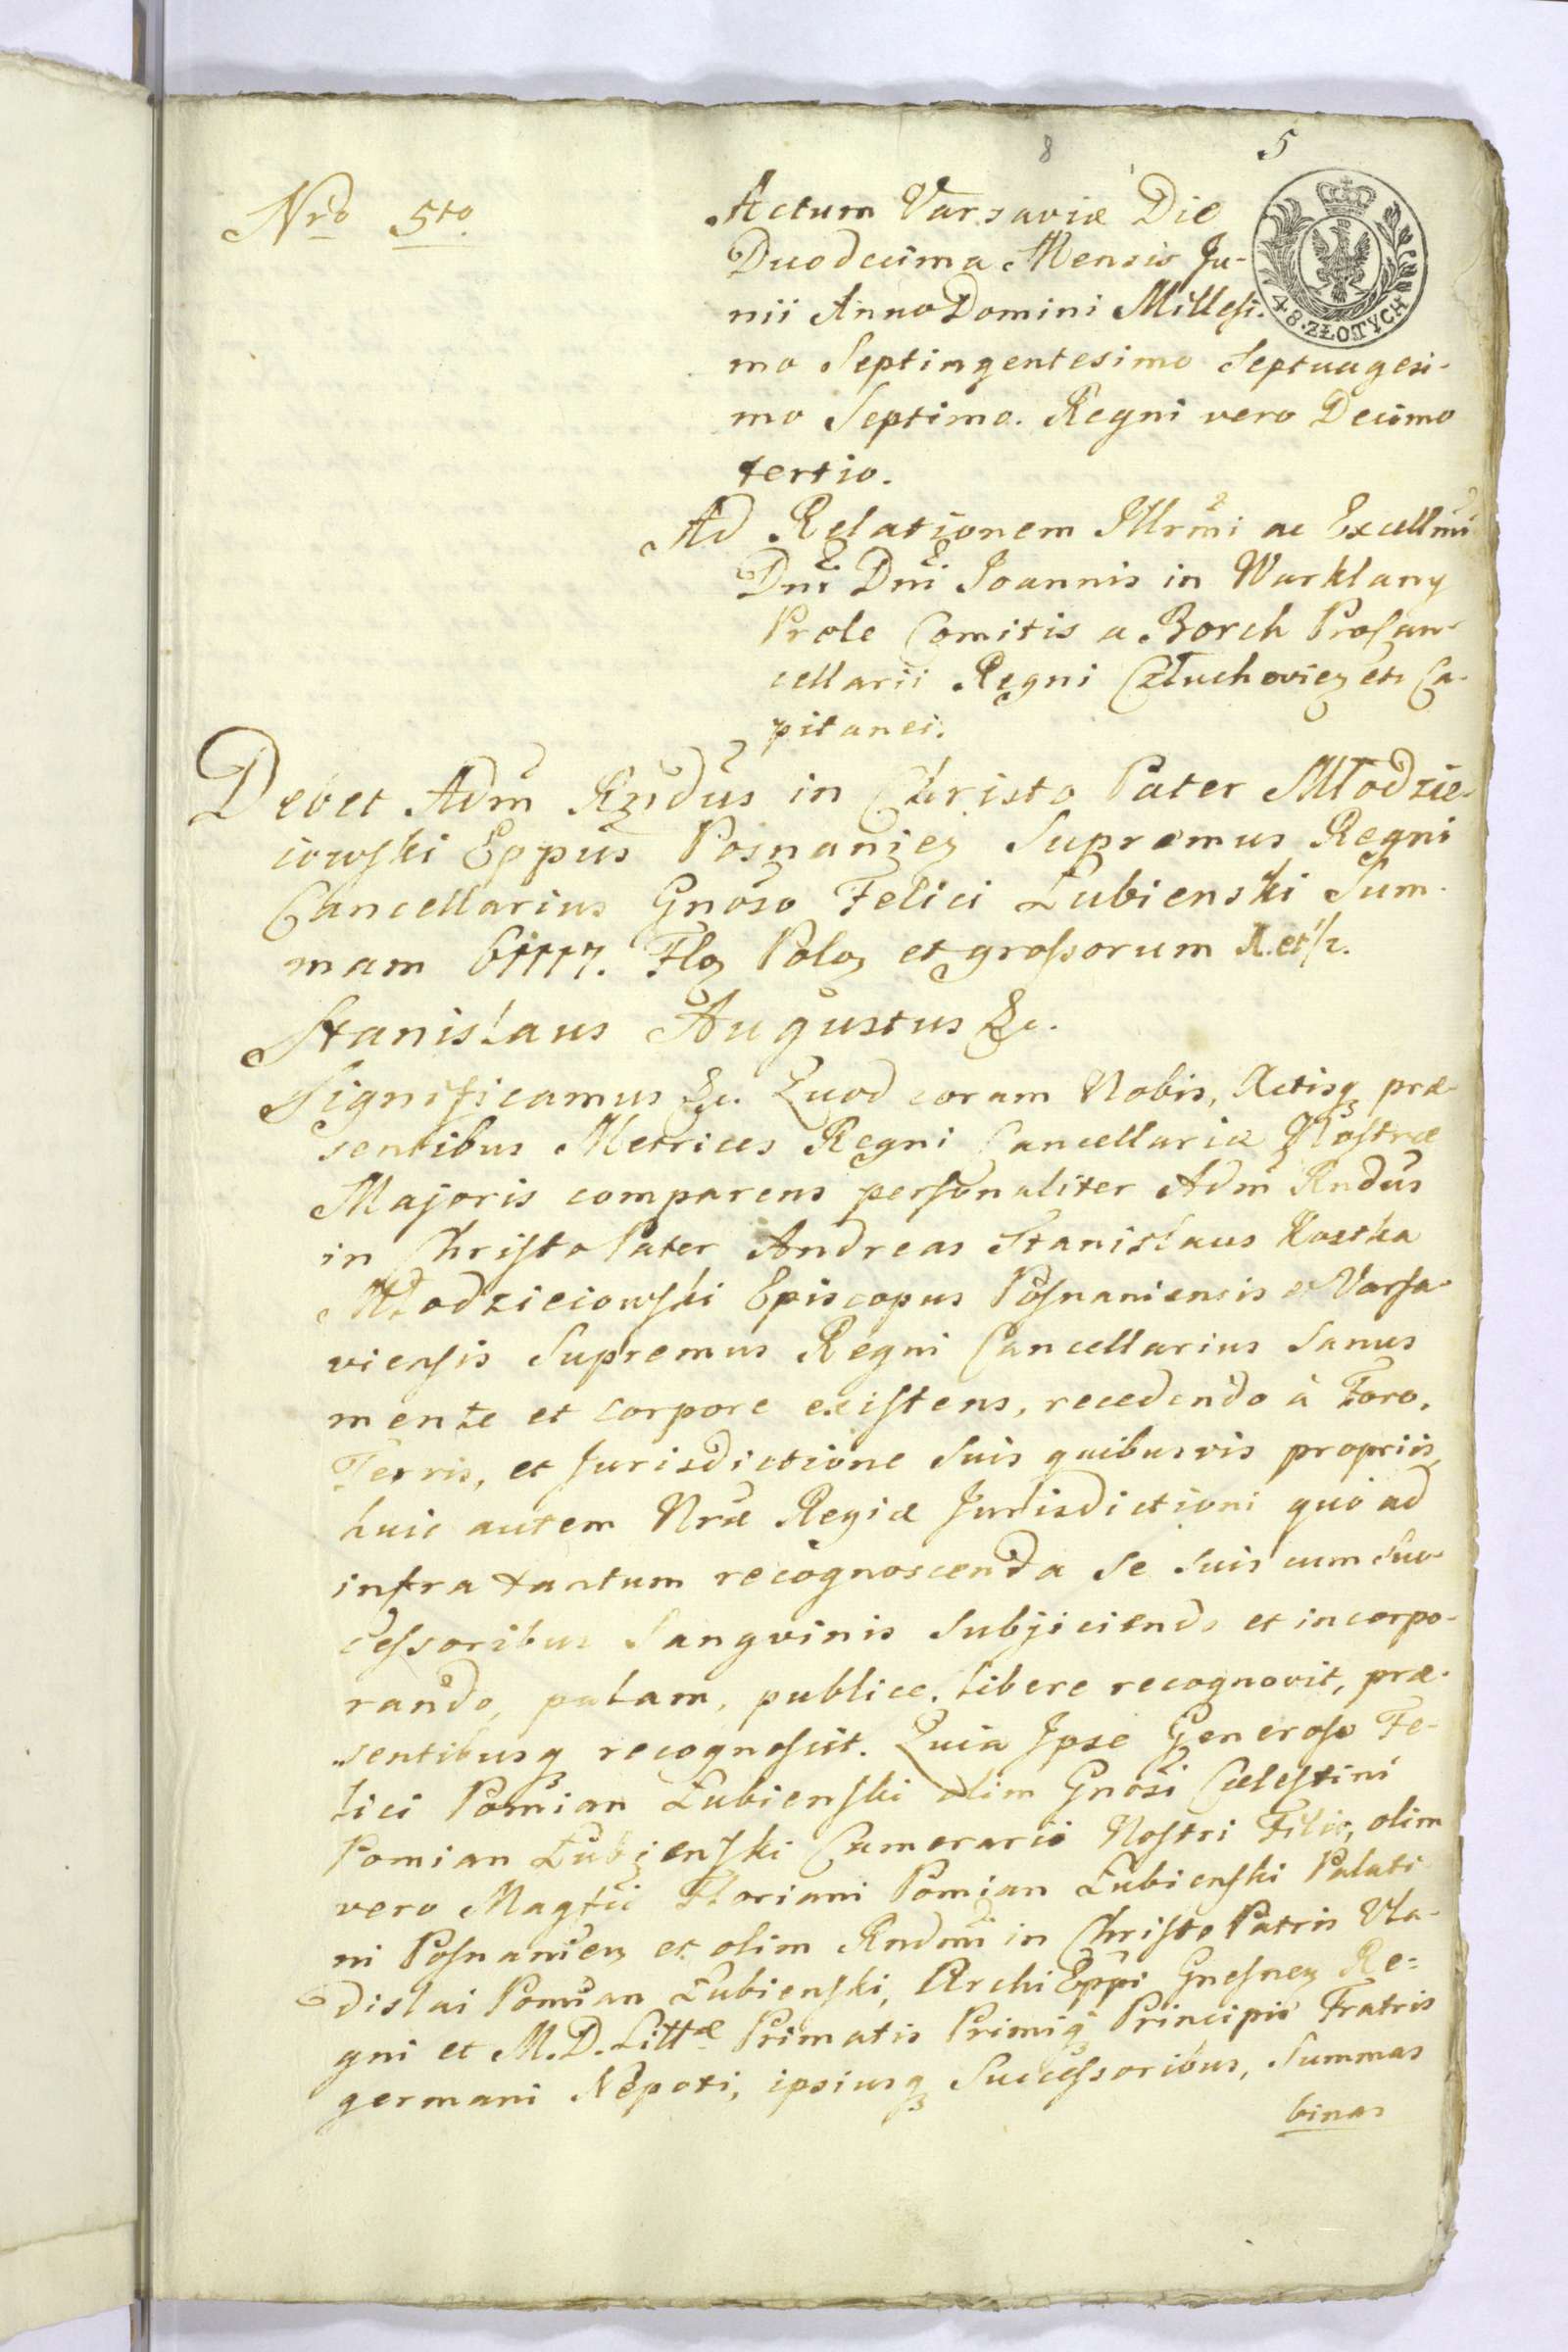 8
5
Nro 5to
Actum Varsaviæ Die
Duodecima Mensis Ju-
nii Anno Domini Millesi-
mo Septingentesimo Septuagesi-
mo Septimo. Regni vero Decimo
tertio.
48. ZŁOTYCH
Ad Relationem Illrmi ac Excellmi
Dni Dni Joannis in Warklany
Prele Comitis a Borch Procan-
cellarii Regni Człuchovien etc Ca-
pitanei.
Debet Adm Rndus in Christo Pater Młodzie-
iowski Eppus Posnanien Supremus Regni
Cancellarius Gnoso Felici Łubienski Sum-
mam 61117. Flo Polo et grossorum X. et 1/2.
Stanislaus Augustus &c.
Significamus &c. Quod coram Nobis, Actisq præ-
sentibus Metrices Regni Cancellariæ Nostræ
Majoris comparens personaliter Adm Rndus
in Christo Pater Andreas Stanislaus Kostka
Młodzieiowski Episcopus Posnaniensis et Varsa-
viensis Supremus Regni Cancellarius Sanus
mente et corpore existens, recedendo à Foro,
Terris, et Jurisdictione Suis quibusvis propriis
huic autem Nræ Regiæ Jurisdictioni quo ad
infra tantum recognoscenda se Suis cum Suc-
cessoribus Sangvinis Subjiciendo et incorpo-
rando, palam, publice, libere recognovit, præ-
sentibusq recognoscit. Quia Ipse Generoso Fe-
lici Pomian Łubienski olim Gnosi Cælestini
Pomian Łubienski Camerarii Nostri Filio, olim
vero Magfci Floriani Pomian Łubienski Palati
ni Posnanien et olim Rndmi in Christo Patris Vla-
dislai Pomian Łubienski, Archi Eppi Gnesnen Re=
gni et M. D. Littæ Primatis Primiq Principis Fratris
germani Nepoti, ipsiusq Successoribus, Summas
binas